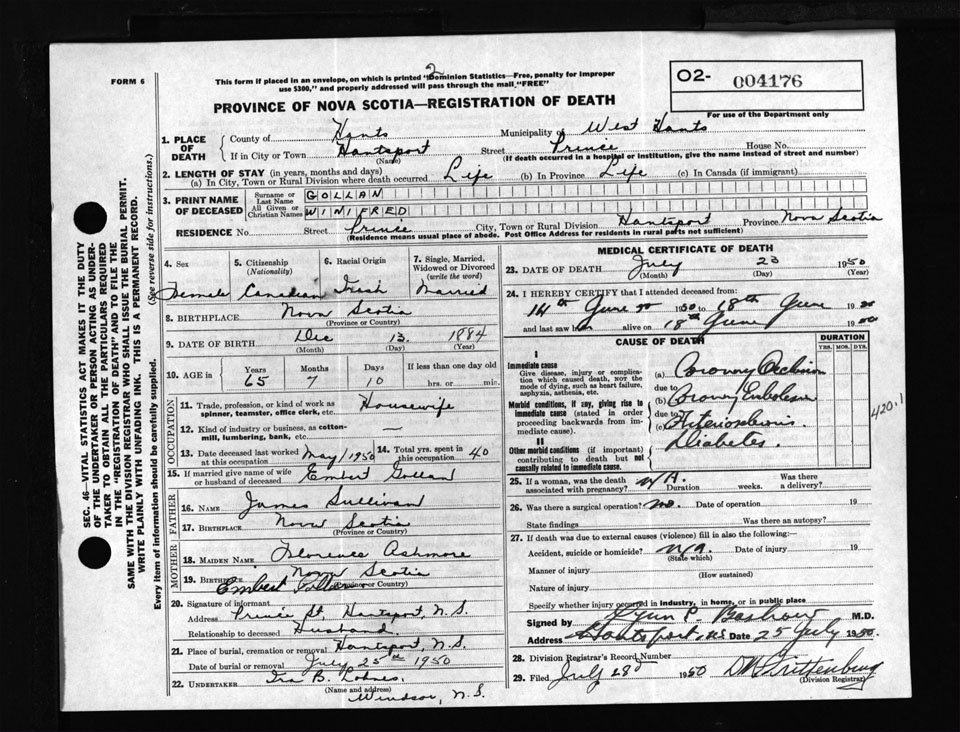 FORM 6
This form if placed in an envelope, on which is printed "Dominion Statistics—Free, penalty for improper
use $300," and properly addressed will pass through the mail "FREE"
2
PROVINCE OF NOVA SCOTIA—REGISTRATION OF DEATH
O2- 004176
For use of the Department only
1. PLACE OF DEATH
County of Hants Municipality of West Hants
If in City or Town Hantsport (Name) Street Prince House No.
(If death occurred in a hospital or institution, give the name instead of street and number)
2. LENGTH OF STAY (in years, months and days)
(a) In City, Town or Rural Division where death occurred Life (b) In Province Life (c) In Canada (if immigrant)
3. PRINT NAME OF DECEASED
Surname or Last Name GOLLAN
All Given or Christian Names WINIFRED
RESIDENCE No. Street Prince City, Town or Rural Division Hantsport Province Nova Scotia
(Residence means usual place of abode. Post Office Address for residents in rural parts not sufficient)
4. Sex Female
5. Citizenship (Nationality) Canadian
6. Racial Origin Irish
7. Single, Married, Widowed or Divorced (write the word) Married
8. BIRTHPLACE Nova Scotia
(Province or Country)
9. DATE OF BIRTH Dec 13 1884
(Month) (Day) (Year)
10. AGE in Years Months Days If less than one day old
65 7 10 hrs. or min.
OCCUPATION
11. Trade, profession, or kind of work as spinner, teamster, office clerk, etc. Housewife
12. Kind of industry or business, as cotton-mill, lumbering, bank, etc. —
13. Date deceased last worked at this occupation May/1950
14. Total yrs. spent in this occupation 40
15. If married give name of wife or husband of deceased Embert Gollan
FATHER
16. NAME James Sullivan
17. BIRTHPLACE Nova Scotia
(Province or Country)
MOTHER
18. MAIDEN NAME Florence Ashmore
19. BIRTHPLACE Nova Scotia
(Province or Country)
20. Signature of informant Embert Gollan
Address Prince St. Hantsport, N.S.
Relationship to deceased Husband
21. Place of burial, cremation or removal Hantsport, N.S.
Date of burial or removal July 25th 1950
22. UNDERTAKER Ira B.
(Name and address) Windsor, N.S.
MEDICAL CERTIFICATE OF DEATH
23. DATE OF DEATH July 23 1950
(Month) (Day) (Year)
24. I HEREBY CERTIFY that I attended deceased from:
14th June 1950 to 18th June 1950
and last saw her alive on 18th June 1950
CAUSE OF DEATH
DURATION
YRS. MOS. DYS.
I
Immediate cause
Give disease, injury or complication which caused death, not the mode of dying, such as heart failure, asphyxia, asthenia, etc.
(a) Coronary Occlusion
due to
Morbid conditions, if any, giving rise to immediate cause (stated in order proceeding backwards from immediate cause).
(b) Coronary Embolism
due to
(c) Arteriosclerosis
II
Other morbid conditions (if important) contributing to death but not causally related to immediate cause.
Diabetes.
420.1
25. If a woman, was the death associated with pregnancy? N/A. Duration weeks. Was there a delivery?
26. Was there a surgical operation? no. Date of operation 19
State findings Was there an autopsy?
27. If death was due to external causes (violence) fill in also the following:
Accident, suicide or homicide? n/a. Date of injury 19
(State which)
Manner of injury
(How sustained)
Nature of injury
Specify whether injury occurred in industry, in home, or in public place
Signed by P. M.D.
Address Hantsport, N.S. Date 25 July 1950.
28. Division Registrar's Record Number
29. Filed July 28d 1950
(Division Registrar)
SEC. 46—VITAL STATISTICS ACT MAKES IT THE DUTY
OF THE UNDERTAKER OR PERSON ACTING AS UNDER-
TAKER TO OBTAIN ALL THE PARTICULARS REQUIRED
IN THE "REGISTRATION OF DEATH" AND TO FILE THE
SAME WITH THE DIVISION REGISTRAR WHO SHALL ISSUE THE BURIAL PERMIT.
WRITE PLAINLY WITH UNFADING INK. THIS IS A PERMANENT RECORD.
Every item of information should be carefully supplied. (See reverse side for instructions.)